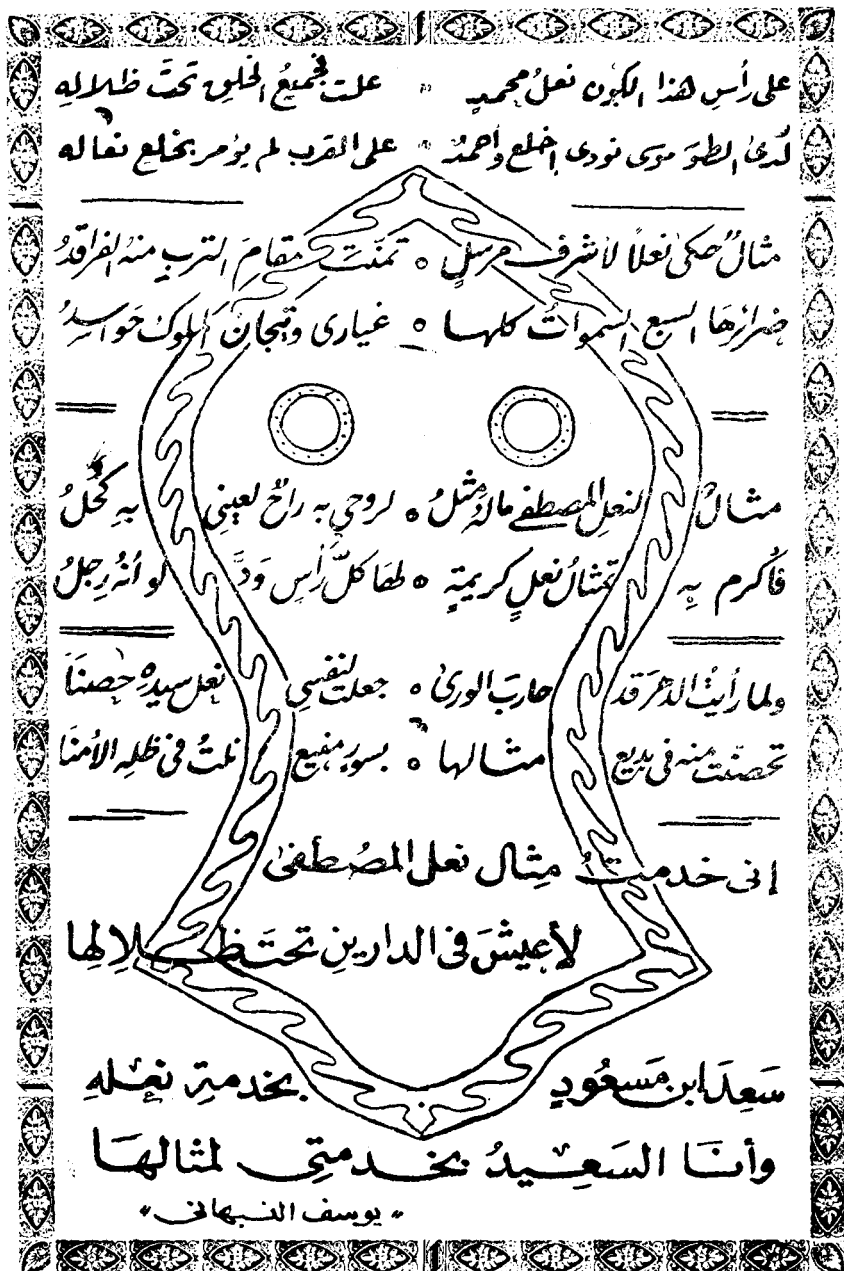 على رأس هذا الكون نعلُ محمدٍ علت فجميعُ الخلق تحتَ ظلالهِ
لدى الطور موسى نودى اخلع وأحمدٌ على القرب لم يؤمر بخلع نعاله
مثالٌ حكى نعلاً لأشرف مرسلٍ تمنّت مقامَ الترب منهُ الفراقدُ
ضرائرُها السبع السموات كلها غيارى وتيجان الملوك حواسدُ
مثالٌ لنعل المصطفى مالهُ مثلُ لروحى به راحٌ لعينى به كُحلُ
فأكرم بهِ تمثالُ نعلٍ كريمةٍ لها كلُّ رأس وَدَّ لو أنهُ رجلُ
ولما رأيتُ الدهرَ قد حاربَ الورى جعلت لنفسى نعل سيدهِ حصناً
تحصنت منه فى بديع مثالها بسورٍ منيع نلتُ فى ظله الأمنا
إنى خدمتُ مِثال نعل المصُطفىٰ
لأعيشَ فى الدارينِ تحتَ ظلالِها
سَعِدَ ابن مَسعُودٍ بخدمة نعلهِ
وأنَا السَعِيدُ بخدمتى لمثالها
« يوسف النبهانى »